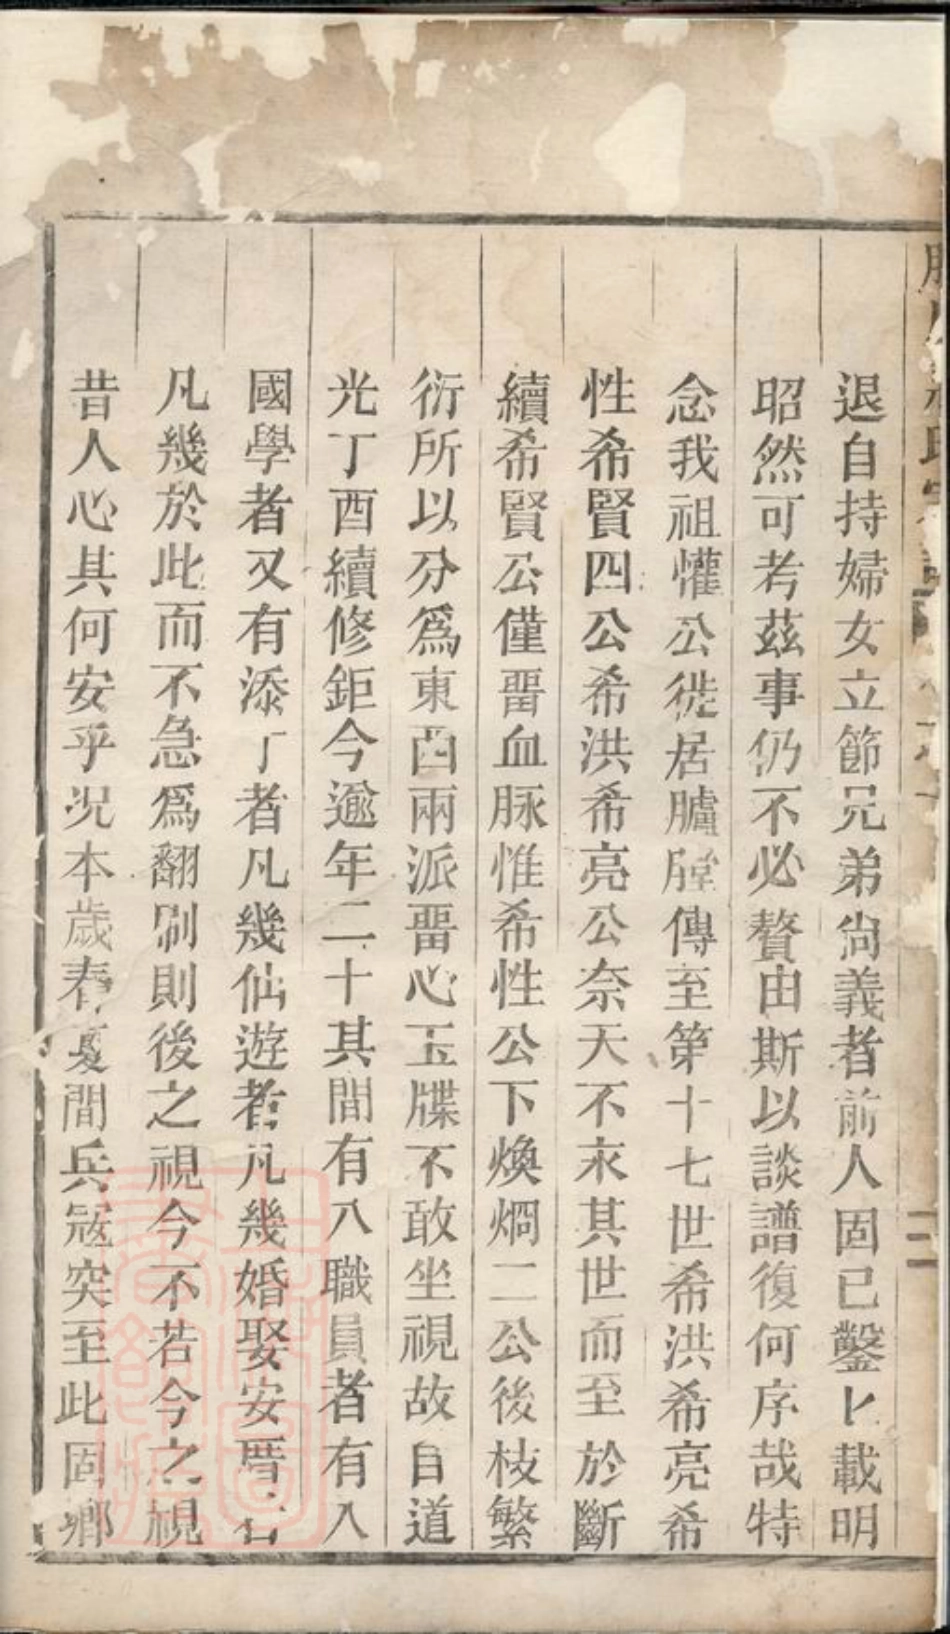 退自持婦女立節兄弟尙義者前人固已鑿匕載明
昭然可考茲事仍不必贅由斯以談譜復何序哉特
念我祖懽公徙居臚膛傳至第十七世希洪希亮希
性希賢四公希洪希亮公奈天不永其世而至於斷
續希賢公僅畱血脉惟希性公下煥烱二公後枝繁
衍所以分爲東西兩派畱心玉牒不敢坐視故自道
光丁酉續修鉅今逾年二十其間有入職員者有入
國學者又有添丁者凡幾仙遊者凡幾婚娶安厝者
凡幾於此而不急爲翻刷則後之視今不若今之視
昔人心其何安乎況本歲春夏間兵寇突至此固鄉
二